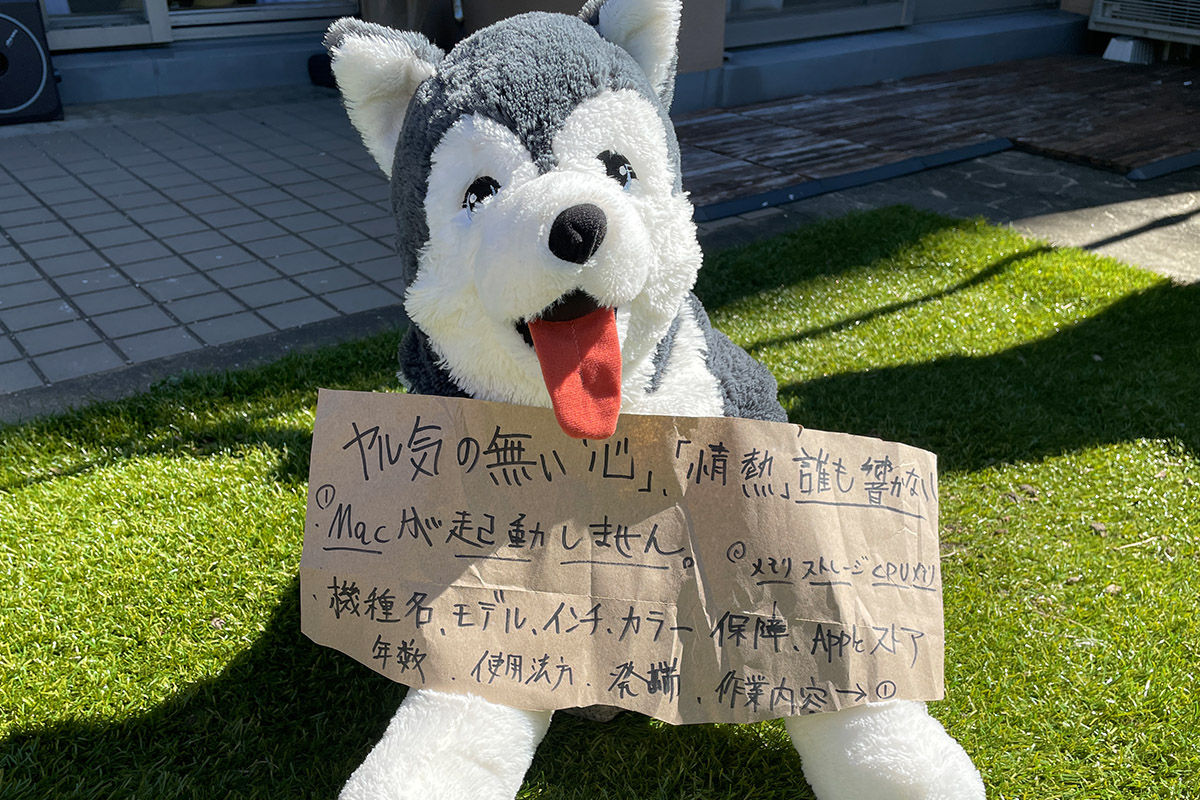 ヤル気の無い「心」、「情熱」誰も響かない
①
・Macが起動しません。
②メモリ ストレージ CPUメモリ
・機種名、モデル、インチ、カラー 保障、Appleストア
年数、使用法方、発端、作業内容→①